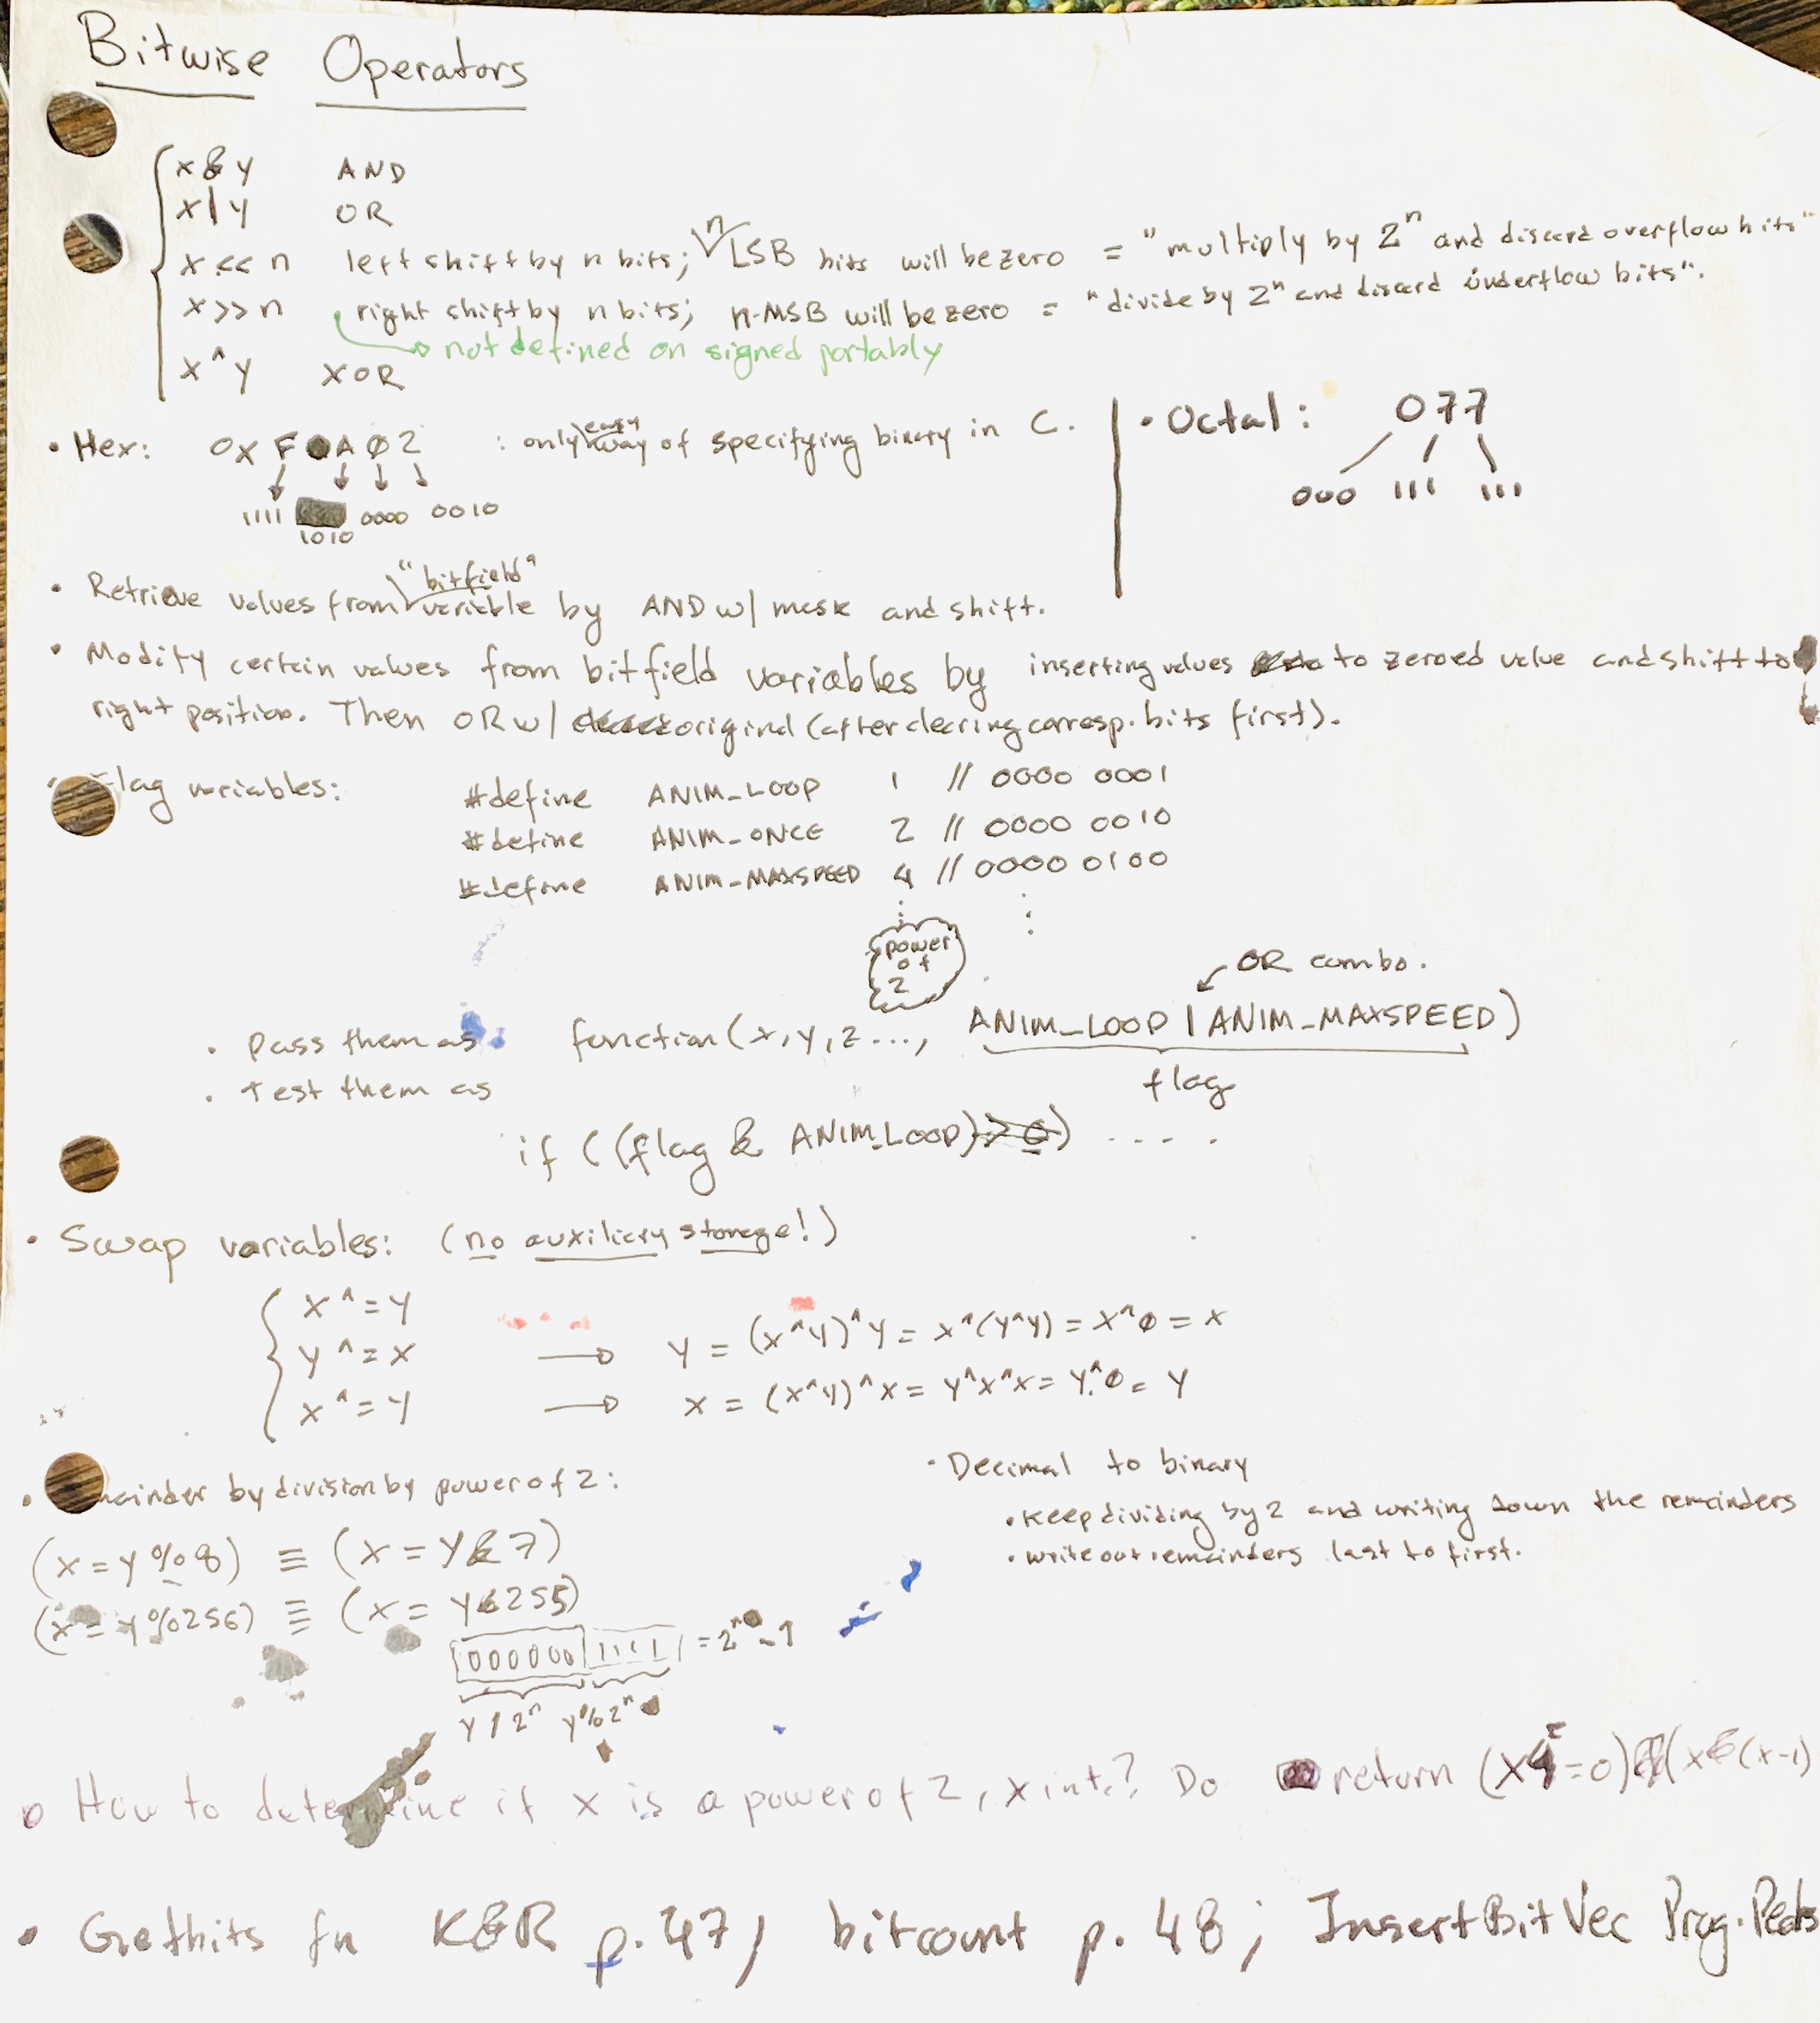 Bitwise Operators
x & y AND
x | y OR
x << n left shift by n bits; n LSB bits will be zero = "multiply by 2^n and discard overflow bits"
x >> n right shift by n bits; n-MSB will be zero = "divide by 2^n and discard underflow bits".
→ not defined on signed portably
x ^ y XOR
• Hex: 0x F A 0 2 : only easy way of specifying binary in C.
1111 1010 0000 0010
• Octal: 077
000 111 111
• Retrieve values from "bitfield" variable by AND w/ mask and shift.
• Modify certain values from bitfield variables by inserting values to zeroed value and shift to
right position. Then OR w/ original (after clearing corresp. bits first).
lag variables:
#define ANIM_LOOP 1 // 0000 0001
#define ANIM_ONCE 2 // 0000 0010
#define ANIM_MAXSPEED 4 // 0000 0100
power
of
2
OR combo.
• Pass them as function(x,y,z..., ANIM_LOOP | ANIM_MAXSPEED)
flag
• Test them as
if ((flag & ANIM_LOOP)) ....
• Swap variables: (no auxiliary storage!)
x ^= y
y ^= x → y = (x^y)^y = x^(y^y) = x^0 = x
x ^= y → x = (x^y)^x = y^x^x = y^0 = y
• mainder by division by power of 2:
(x = y % 8) ≡ (x = y & 7)
(x = y % 256) ≡ (x = y & 255)
000000 1111 = 2^n - 1
y / 2^n y % 2^n
• Decimal to binary
• Keep dividing by 2 and writing down the remainders
• write out remainders last to first.
• How to determine if x is a power of 2, x int.? Do return (x =0) (x & (x-1)
• Getbits fn K&R p. 47, bitcount p. 48; InsertBitVec Prog. Pearls